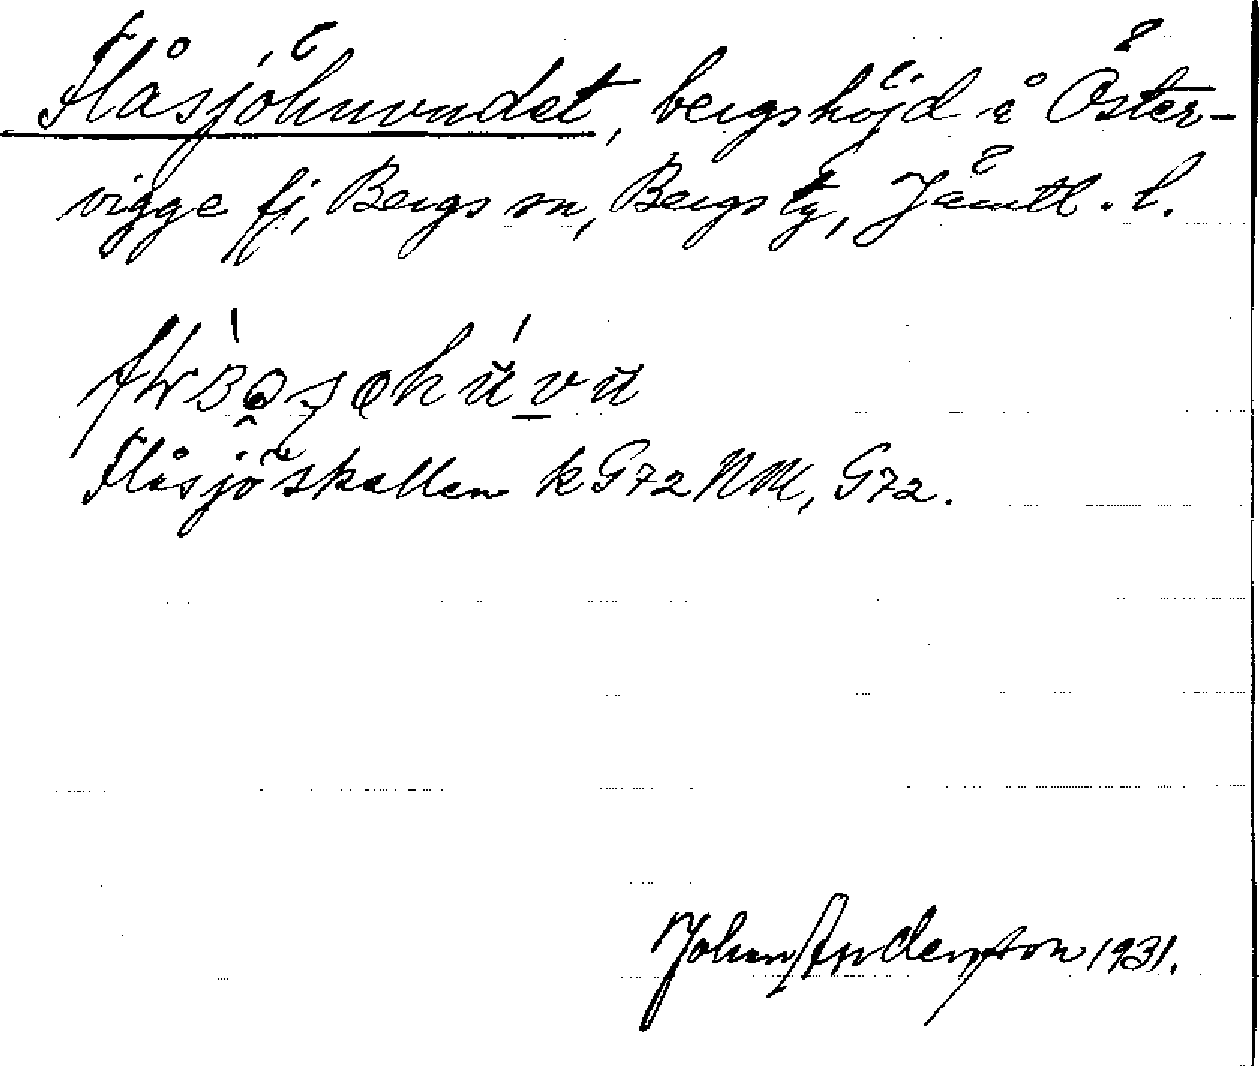 Flåsjöhuvudet, bergshöjd å Öster-
vigge fj, Bergs sn, Bergs tg, Jämtl. l.
Flåsjöskallen k G72 NM, G72.
John Andersson 1931.